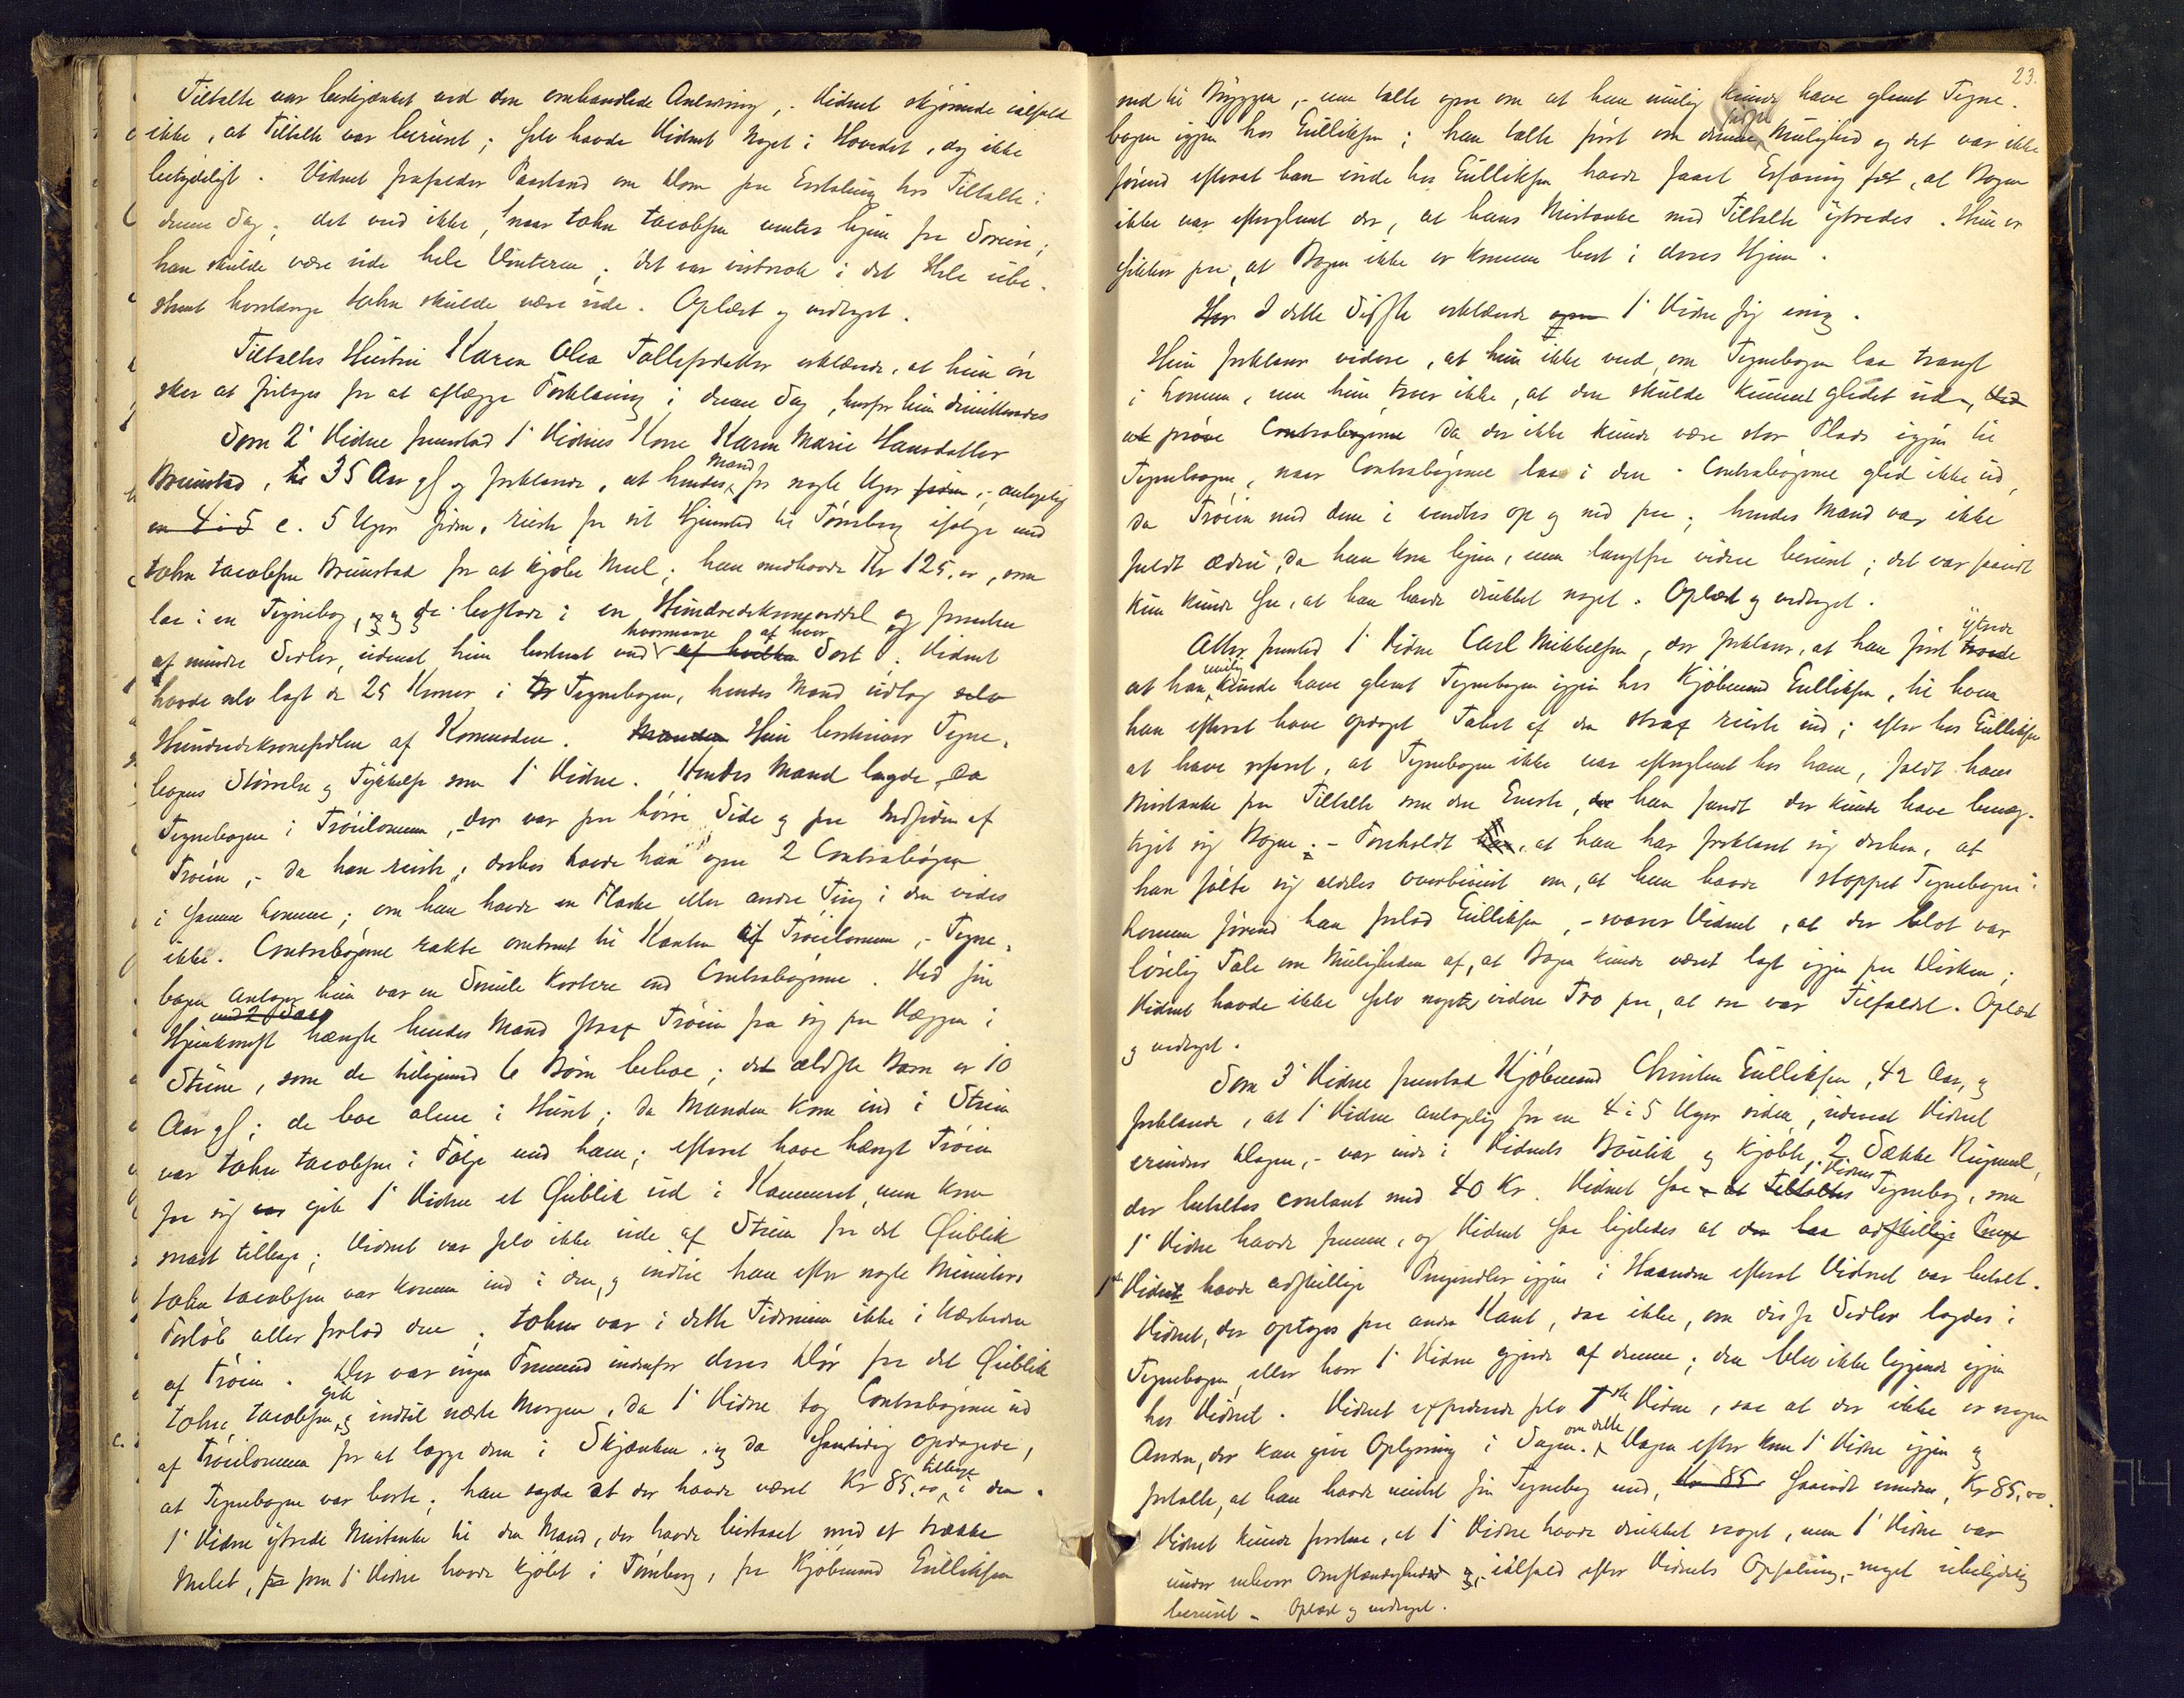 Tiltalte var beskjænket ved den omhandlede Anledning, - Vidnet skjønnede ialfald
ikke, at Tiltalte var beruset; selv havde Vidnet Noget i Hovedet, dog ikke
betydeligt. Vidnet frafalder Paastand om Dom paa Erstatning hos Tiltalte i
denne Sag; det ved ikke, naar John Jacobsen ventes hjem fra
han skulde være ude hele Vinteren; det var vistnok i det Hele ube-
stemt hvorlænge John skulde være ude. Oplæst og vedtaget.
Tiltaltes Hustru Karen Olea Tollefsdatter erklærede, at hun øn-
sker at fritages for at aflægge Forklaring i denne Sag, hvorfor hun dimitteredes
Som 2' Vidne fremstod 1' Vidnes Kone Karen Marie Hansdatter
Brunstad, 35 Aar gl og forklarede, at hendes Mand for nogle Uger siden, antagelig
en 4 à 5 c. 5 Uger siden, reiste fra sit Hjemsted til Tønsberg ifølge med
John Jacobsen Brunstad for at kjøbe Meel; han medhavde Kr 125,00, som
laa i en Tegnebog, og de bestode i en Hundredekroneseddel og forresten
af mindre Sedler, uden at hun bestemt ved hvormange af hver af hvilken Sort. Vidnet
havde selv lagt de 25 Kroner i Tegnebogen, hendes Mand udtog selv
Hundredekronesedlen af Kommoden. Manden Hun beskriver Tegne-
bogens Størrelse og Tykkelse som 1' Vidne. Hendes Mand lagde, da
Tegnebogen i Trøielommen, - der var paa høire Side og paa Indsiden af
Trøien, - da han reiste; desuden havde han ogsaa 2 Contrabøger
i samme Lomme; om han havde en Flaske eller andre Ting i den vides
ikke. Contrabøgerne rakte omtrent til Kanten af Trøielommen, - Tegne-
bogen antager hun var en Smule kortere end Contrabøgerne. Ved sin
Hjemkomst hængte hendes Mand strax Trøien fra sig paa Væggen i
Stuen, som de tilligemed 6 Børn beboe; det ældste Barn er 10
Aar gl; de boe alene i Huset; da Manden kom ind i Stuen
var John Jacobsen i Følge med ham; efterat have hængt Trøien
fra sig gik 1' Vidne et Øieblik ud i Kammeret, men kom
snart tilbage; Vidnet var selv ikke ude af Stuen fra det Øieblik
John Jacobsen var kommen ind i den, og indtil han efter nogle Minuters
Forløb atter forlod den; John var i dette Tidsrum ikke i Nærheden
af Trøien. Der var ingen Fremmed indenfor deres Dør fra det Øieblik
John Jacobsen gik og indtil næste Morgen, da 1' Vidne tog Contrabøgerne ud
af Trøielommen for at lægge dem i Skjænken, og da samtidig opdagede,
at Tegnebogen var borte; han sagde at der havde været Kr 85,00 tilbage i den.
1' Vidne ytrede Mistanke til den Mand, der havde bistaaet med at trække
Melet, fra som 1' Vidne havde kjøbt i Tønsberg, fra Kjøbmand Gulliksen
23.
ned til Bryggen, - men talte ogsaa om at han mulig kunde have glemt Tegne-
bogen igjen hos Gulliksen; han talte først om denne sidste Mulighed og det var ikke
førend efterat han inde hos Gulliksen havde faaet Erfaring for, at Bogen
ikke var efterglemt der, at hans Mistanke mod Tiltalte ytredes. Hun er
sikker paa, at Bogen ikke er kommen bort i deres Hjem.
Her I dette Sidste erklærede ogsaa 1' Vidne sig enig.
Hun forklarer videre, at hun ikke ved, om Tegnebogen laa trangt
i Lommen, men hun troer ikke, at den skulde kunnet glidet ud,
prøve Contrabøgerne da der ikke kunde være stor Plads igjen til
Tegnebogen, naar Contrabøgerne laa i den. Contrabøgerne gled ikke ud,
da Trøien med dem i vendtes op og ned paa; hendes Mand var ikke
fuldt ædru, da han kom hjem, men langtfra videre beruset; det var saavidt
hun kunde see, at han havde drukket noget. Oplæst og vedtaget.
Atter fremstod 1' Vidne Carl Mikkelsen, der forklarer, at han først ytrede troede
at han mulig kunde have glemt Tegnebogen igjen hos Kjøbmand Gulliksen, til hvem
han efterat have opdaget Tabet af den strax reiste ind; efter hos Gulliksen
at have erfaret, at Tegnebogen ikke var efterglemt hos ham, faldt hans
Mistanke paa Tiltalte som den Eneste, der han fandt der kunde have bemæg-
tiget sig Bogen. - Foreholdt at han har forklaret sig derhen, at
han følte sig aldeles overbeviist om, at han havde stoppet Tegnebogen i
Lommen førend han forlod Gulliksen, - svarer Vidnet, at der blot var
løselig Tale om Muligheden af, at Bogen kunde været lagt igjen paa Disken;
Vidnet havde ikke selv noget videre Tro paa, at saa var Tilfældet. Oplæst
og vedtaget.
Som 3' Vidne fremstod Kjøbmand Christen Gulliksen, 42 Aar, og
forklarede, at 1' Vidne antagelig for en 4 à 5 Uger siden, uden at Vidnet
erindrer Dagen, - var inde i Vidnets Boutik og kjøbte 2 Sække Rugmeel,
der betaltes contant med 40 Kr. Vidnet saa - at Tiltaltes 1' Vidnes Tegnebog, som
1' Vidne havde fremme, og Vidnet saa ligeledes at der laa adskillige Penge
1ste Vidnet havde adskillige Pengesedler igjen i Haanden efterat Vidnet var betalt.
Vidnet, der optoges paa anden Kant, saa ikke, om disse Sedler lagdes i
Tegnebogen, eller hvor 1' Vidne gjorde af denne; den blev ikke liggende igjen
hos Vidnet. Vidnet expederede selv 1ste Vidne, saa at der ikke er nogen
Anden, der kan give Oplysning i Sagen om dette. Dagen efter kom 1' Vidne igjen og
fortalte, at han havde mistet sin Tegnebog med, Kr 85 saavidt erindres, Kr 85,00.
Vidnet kunde forstaa, at 1' Vidne havde drukket noget, men 1' Vidne var
under enhver Omstændighed og, - ialfald efter Vidnets Opfatning, - meget ubetydelig
beruset - Oplæst og vedtaget.